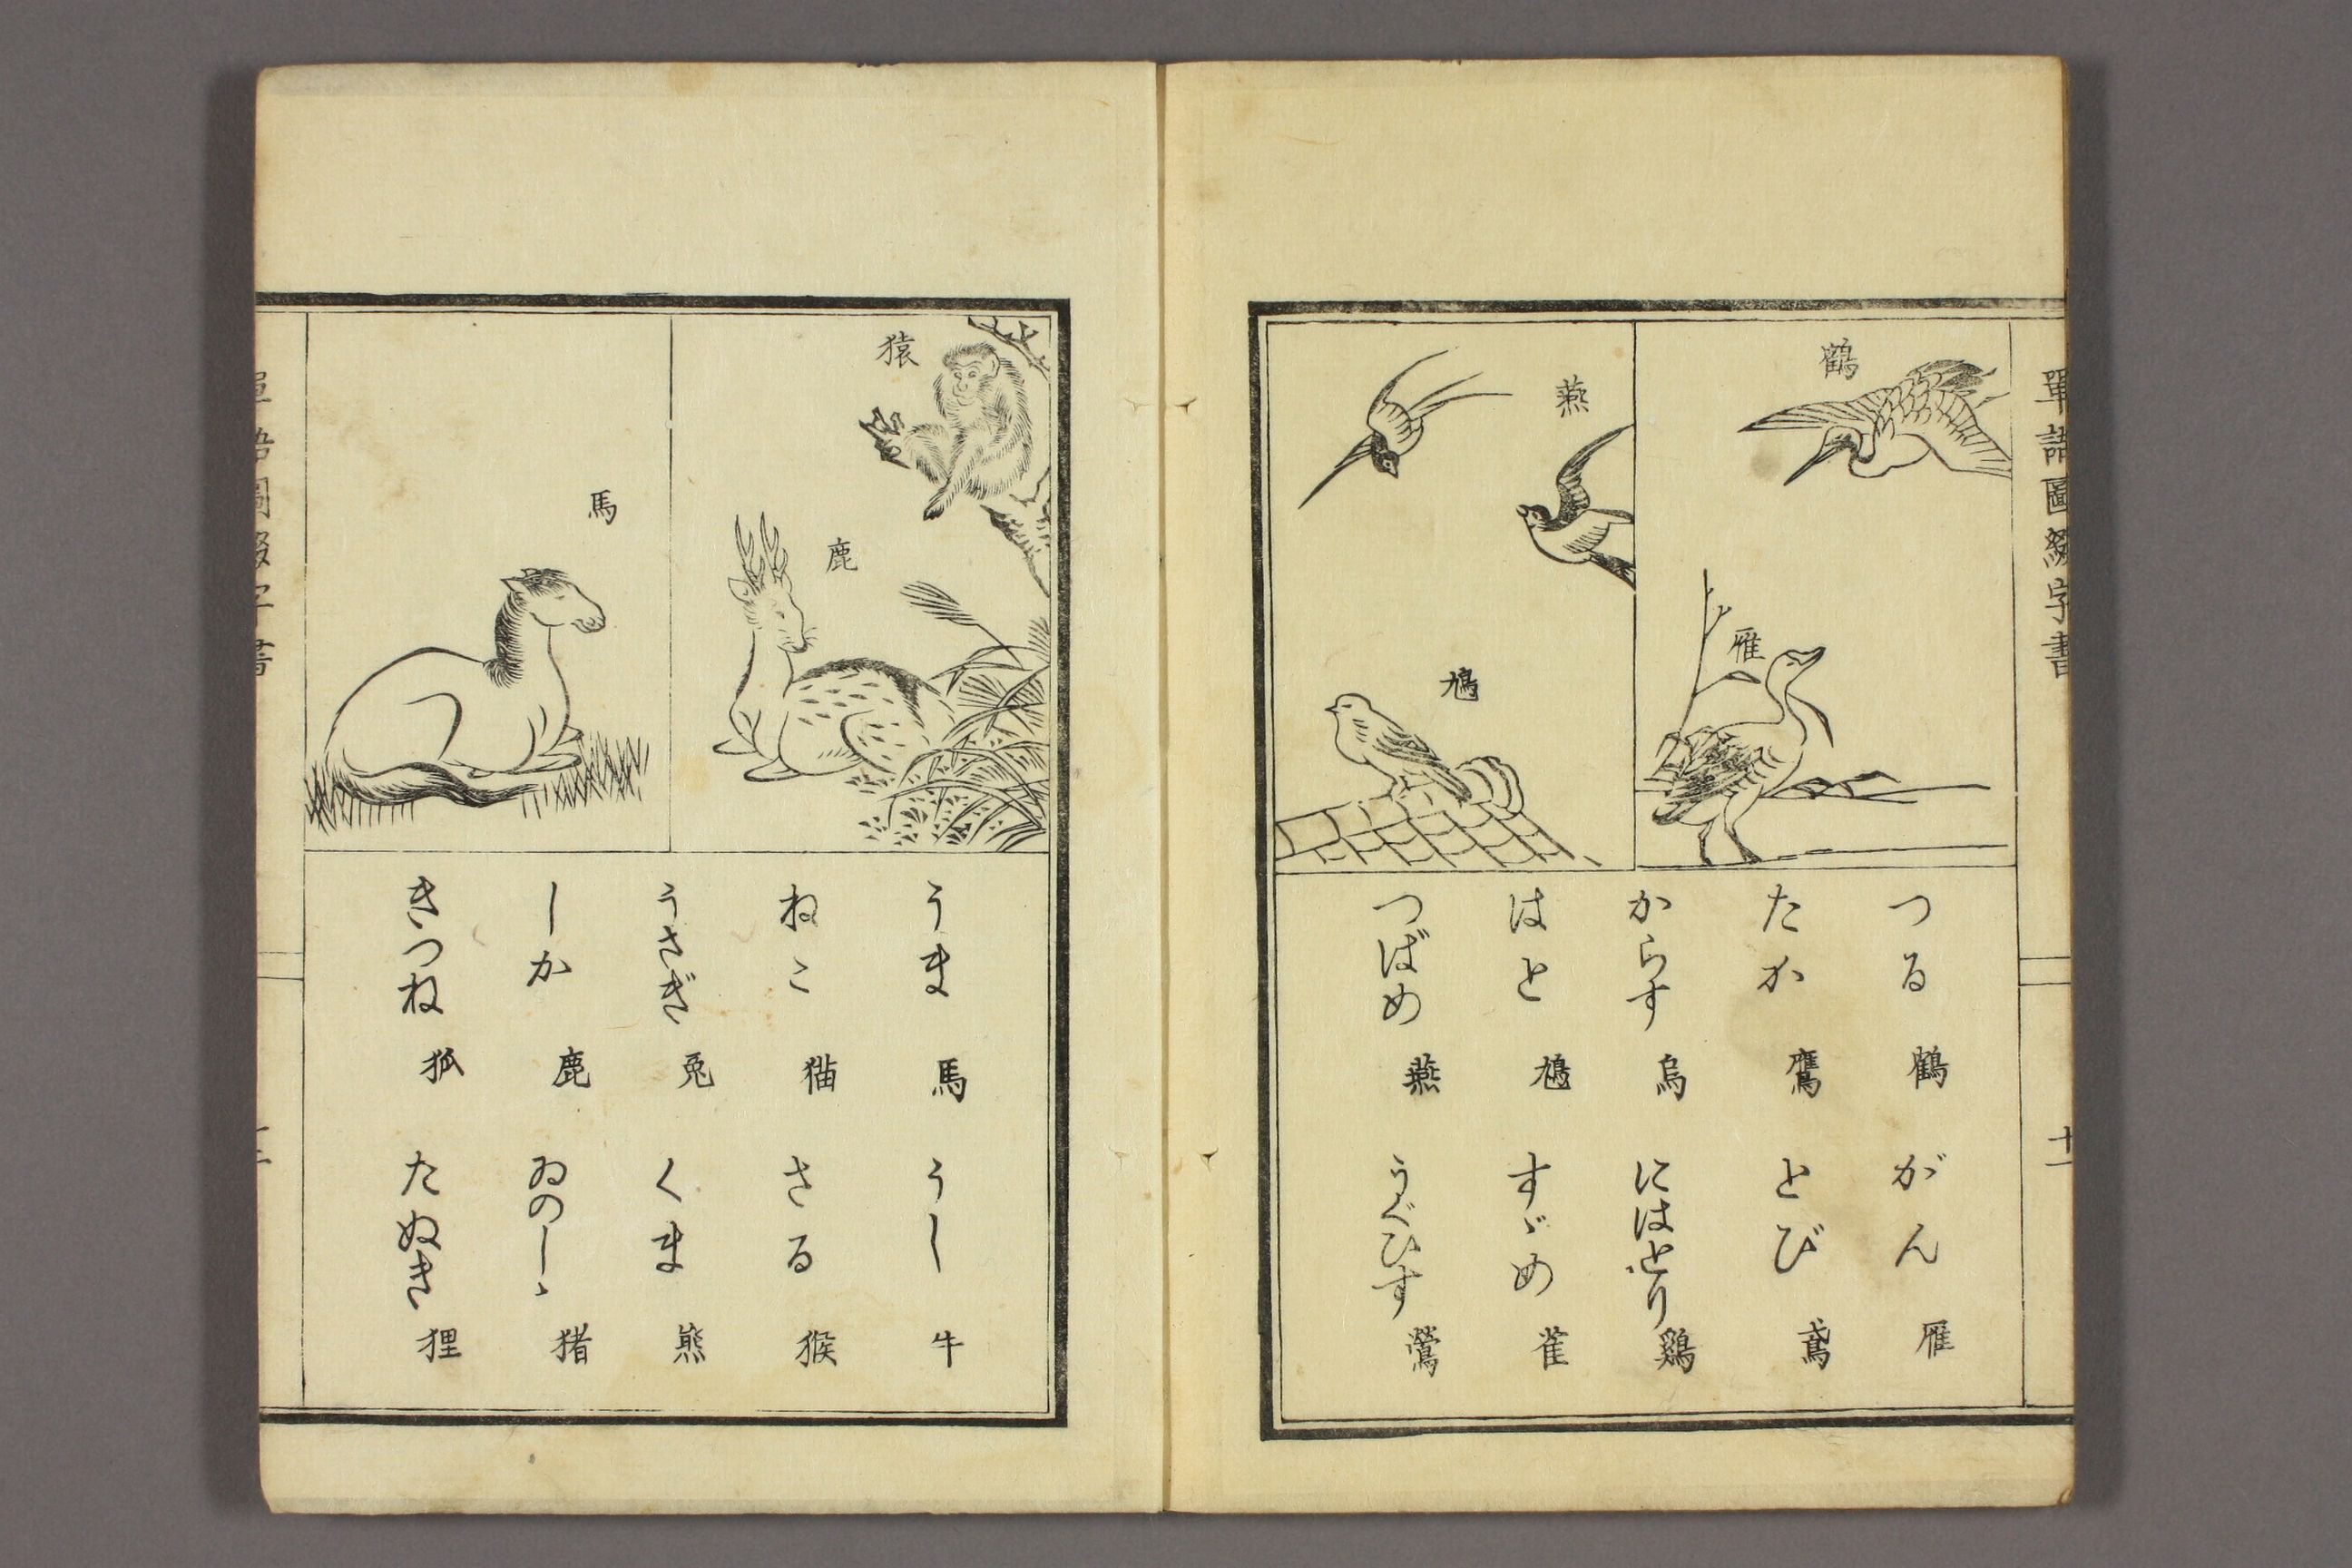 單語圖綴字書
十一
鶴
雁
燕
鳩
つる 鶴 がん 雁
たか 鷹 とび 鳶
からす 烏 にはとり 鷄
はと 鳩 すゞめ 雀
つばめ 燕 うぐひす 鶯
猿
鹿
馬
うま 馬 うし 牛
ねこ 猫 さる 猴
うさぎ 兎 くま 熊
しか 鹿 ゐのしゝ 猪
きつね 狐 たぬき 狸
單語圖綴字書